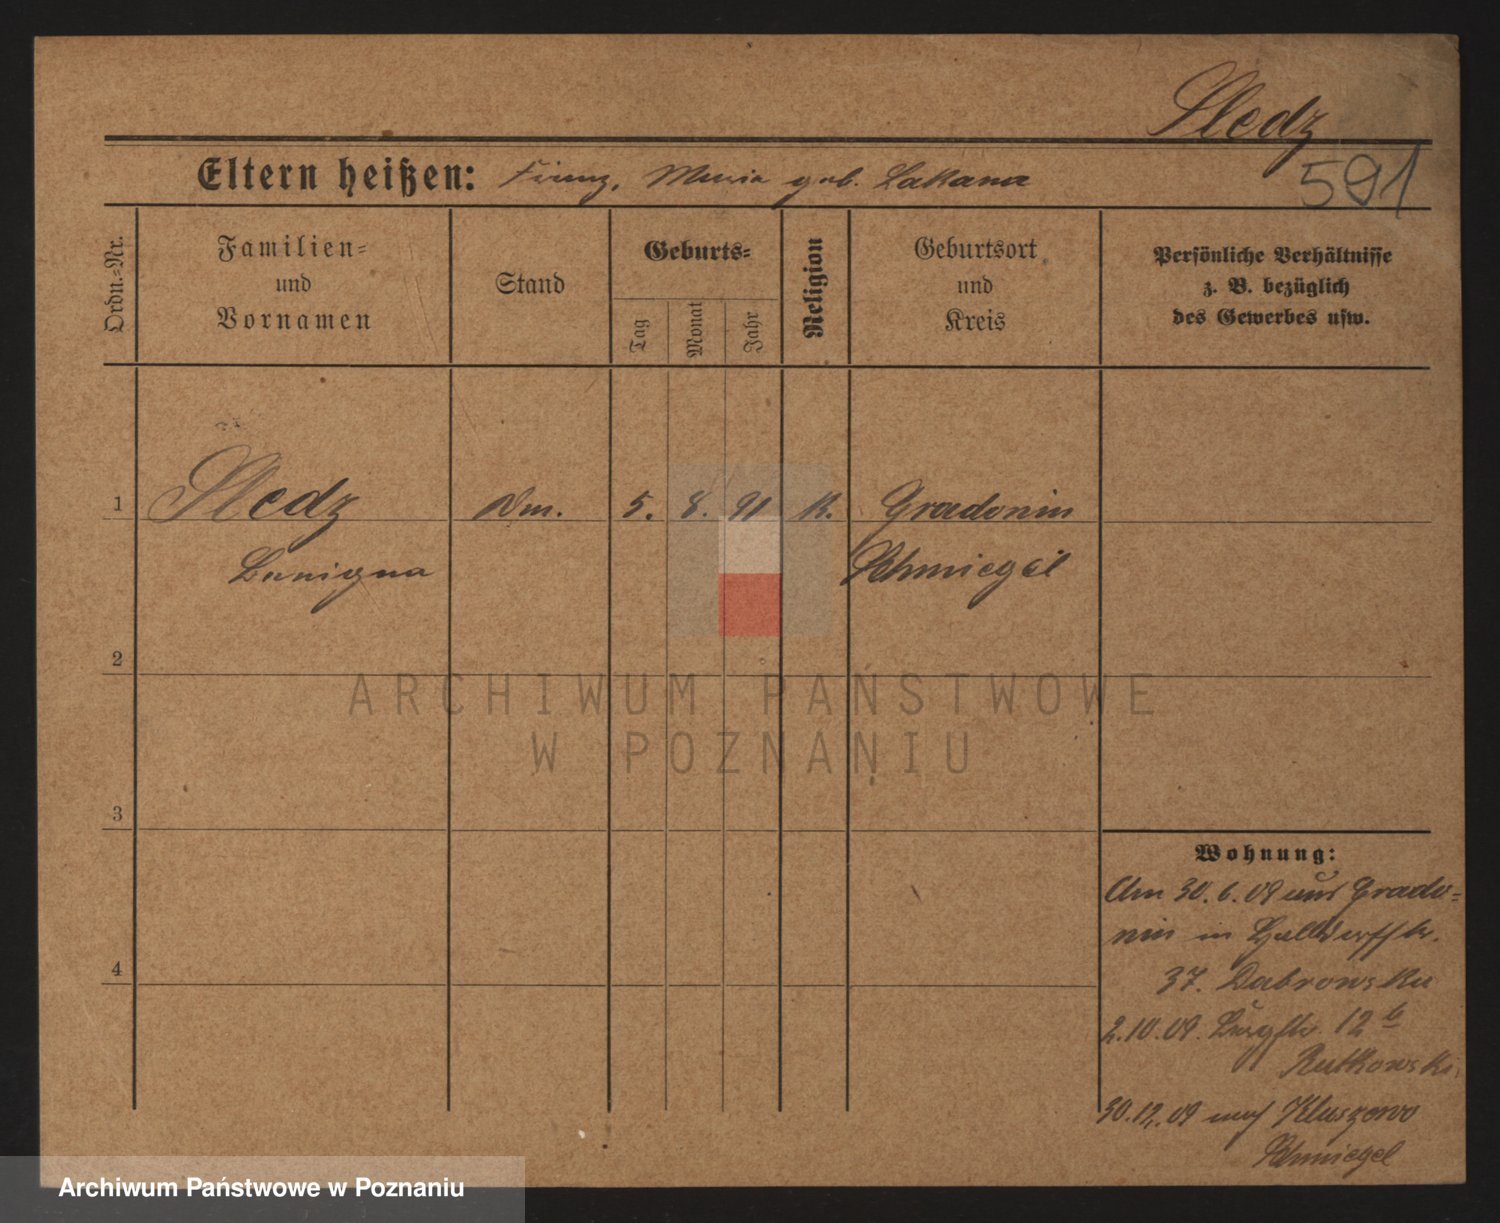 Sledz
591
Eltern heißen: Franz, Maria geb. Lakama
Ordn.-Nr.
Familien-
und
Vornamen
Stand
Geburts-
Tag
Monat
Jahr
Religion
Geburtsort
und
Kreis
Persönliche Verhältnisse
z. B. bezüglich
des Gewerbes usw.
1 Sledz Dm. 5. 8. 91 K. Gradowin
Schmiegel
2
ARCHIWUM PAŃSTWOWE
W POZNANIU
3
4
Wohnung:
Am 30.6.09 aus Grado-
win in
37. Dabrowska
2.10.09. Burgstr. 12 b
Rutkowski
30.12.09 nach Kluszewo
Schmiegel
Archiwum Państwowe w Poznaniu